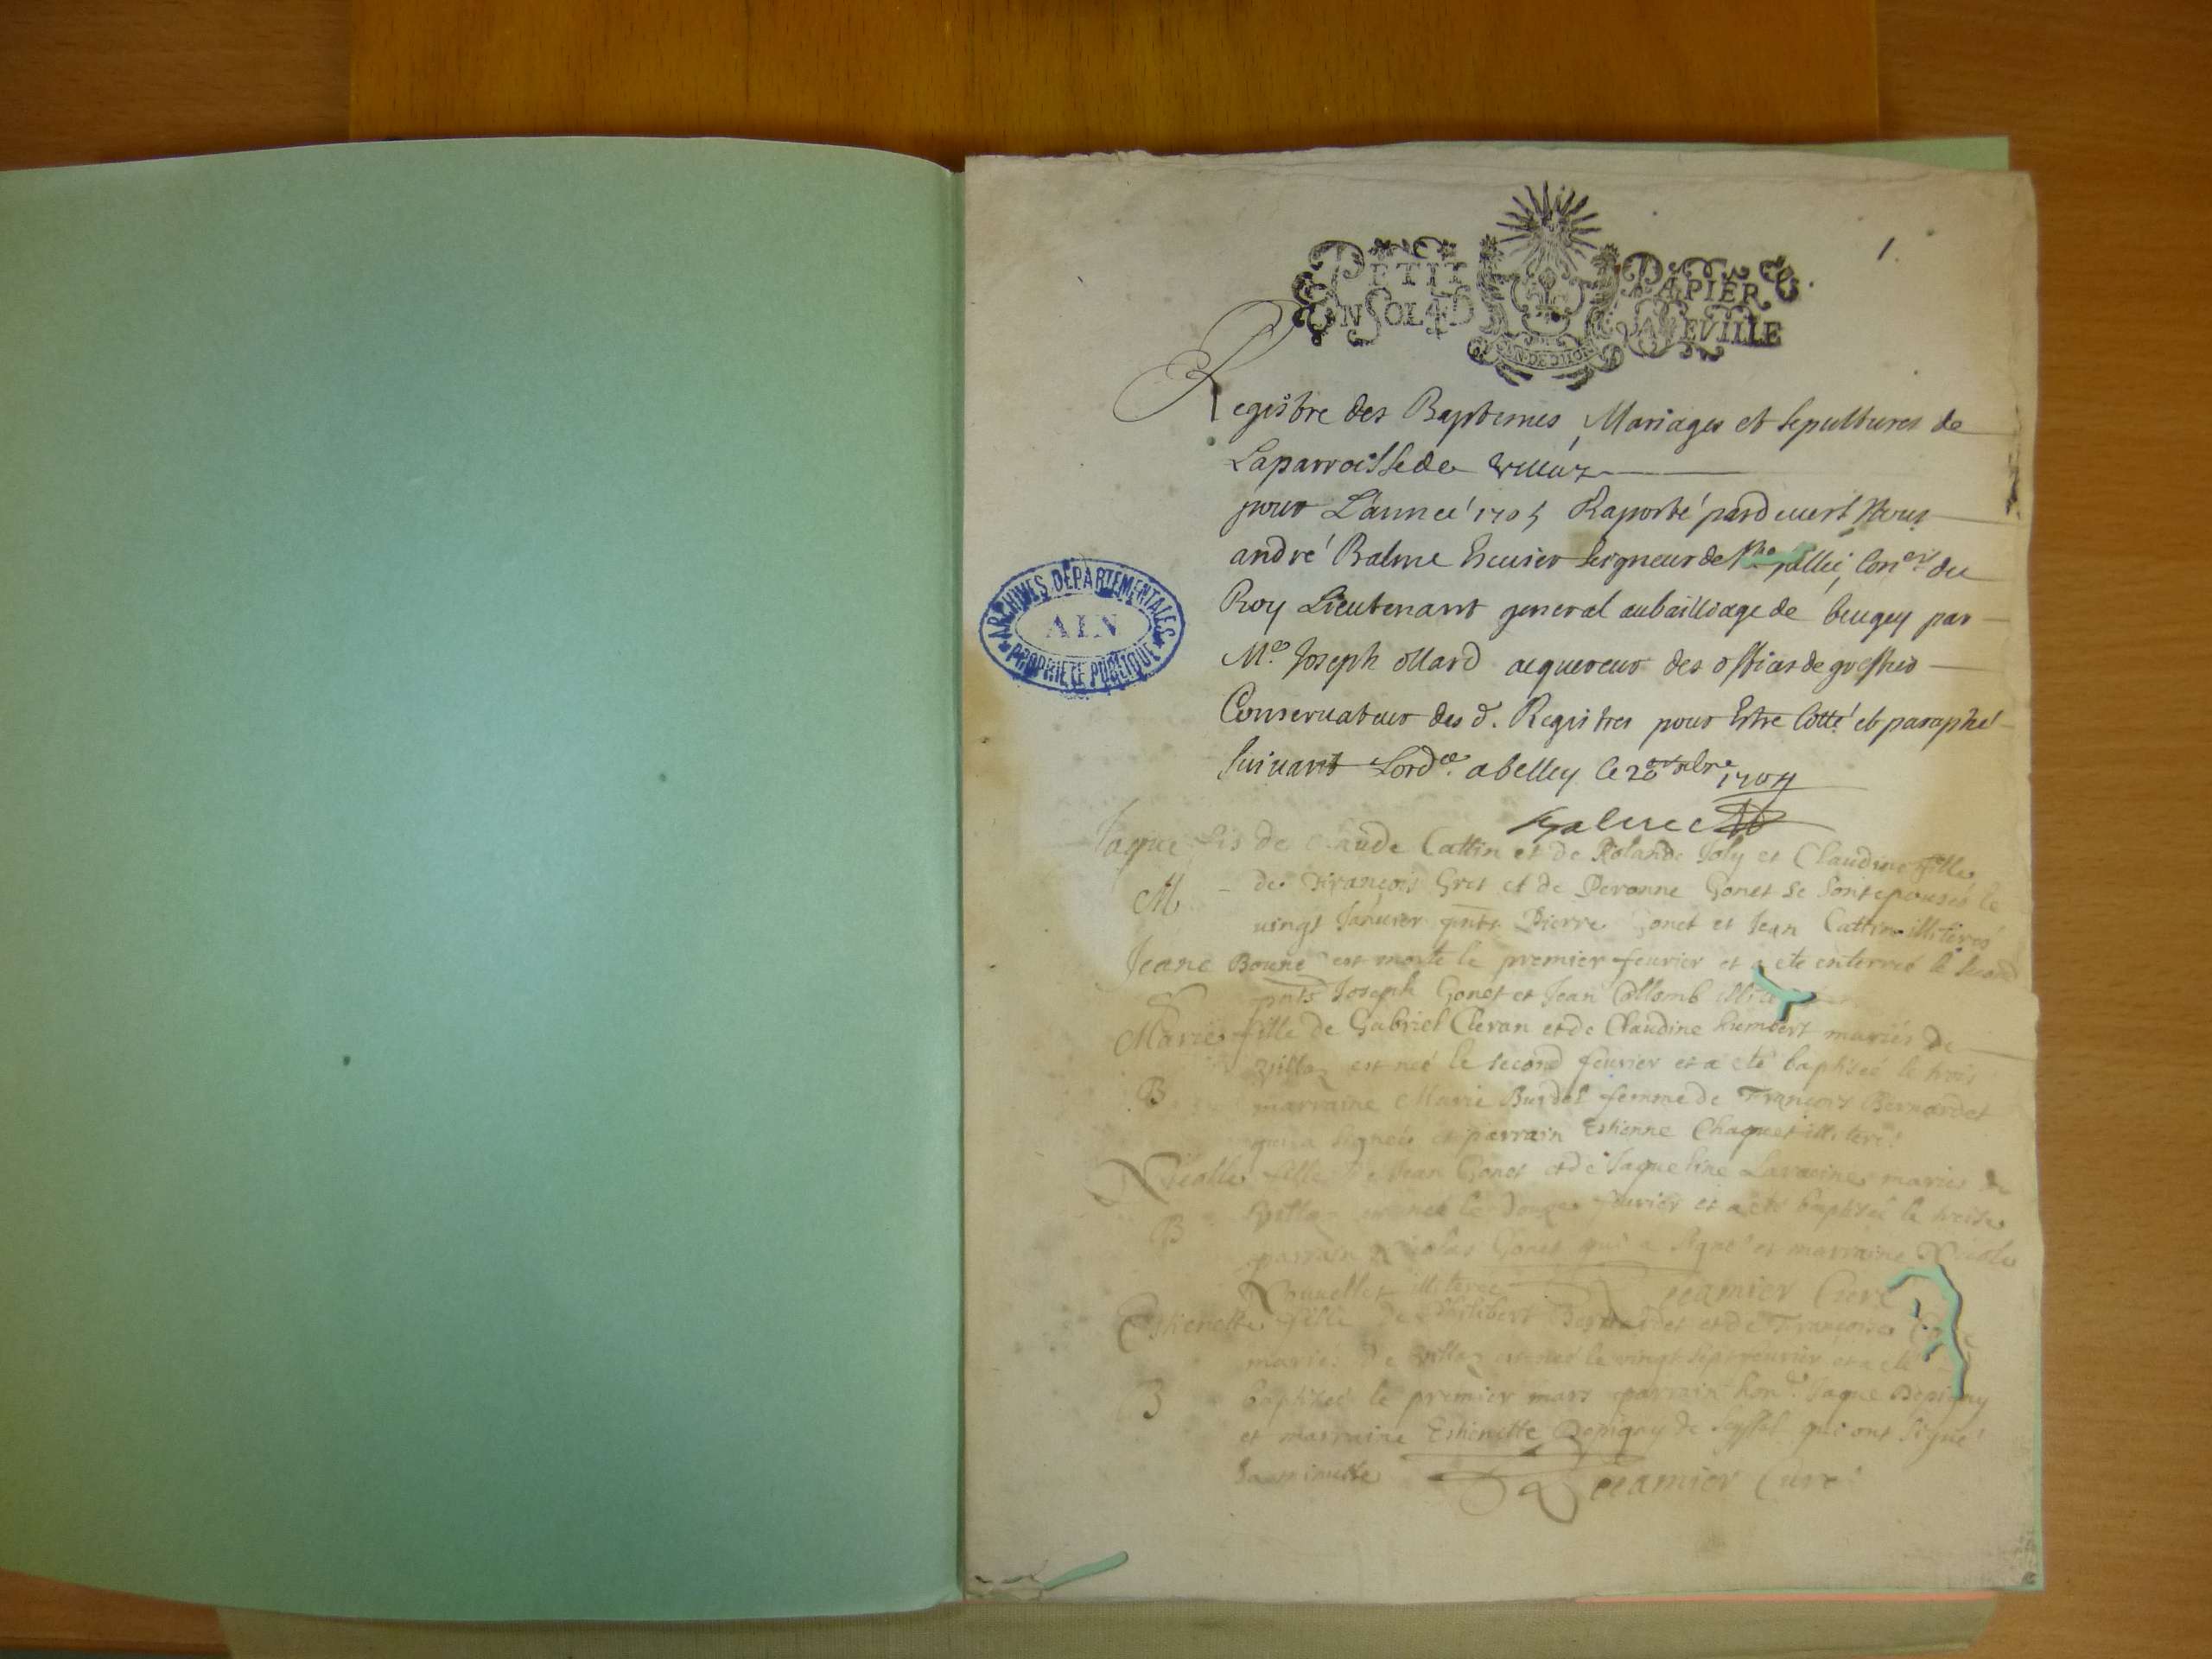 1.
PETIT PAPIER
UN SOL 4 D LA FEVILLE
Registre des Baptemes, Mariages et sepultures de
Laparroisse de
pour L'année 1705 Raporté pardevert Nous
andré Balme Escuier seigneur de Con.er du
Roy Lieutenant general aubailliage de beugey par
M.e Joseph ollard aquereur des offices de greffier
Conservateur des d. Registres pour Estre Cotté et paraphé
suivant Lord.ce a belley le 20 1704
Balme
ARCHIVES DÉPARTEMENTALES
AIN
PROPRIÉTÉ PUBLIQUE
Jaque fils de Claude Cattin et de Rolande Joly et Claudine fille
M de François Gret et de Peronne Gonet se sont epousés le
vingt Janvier pnts Pierre Gonet et Jean Cattin illiterés
Jeane est morte le premier feurier et a ete enterreé le second
pnts Joseph Gonet et Jean Collomb
Marie fille de Gabriel Cleran et de Claudine humbert mariés de
Villaz est neé le second feurier et a eté baptiseé le trois
B marraine Marie Burdet femme de François Bernardet
qui a signeé et parrain Estienne Chaquet illiteré
Nicolle fille de Jean Gonet et de Jaqueline Lavacine mariés de
B Villaz est neé le douze feurier et a eté baptiseé le treise
parrain Nicolas Gonet qui a signé et marraine Nicole
illiteree curé
Estienette fille de Philibert Bernardet et de Françoise
mariés de Villaz est neé le vingt sept feurier et a eté
B baptiseé le premier mars parrain hon. Jaque Depigny
et marraine Estienette Depigny de Seyssel qui ont signé
la minutte curé